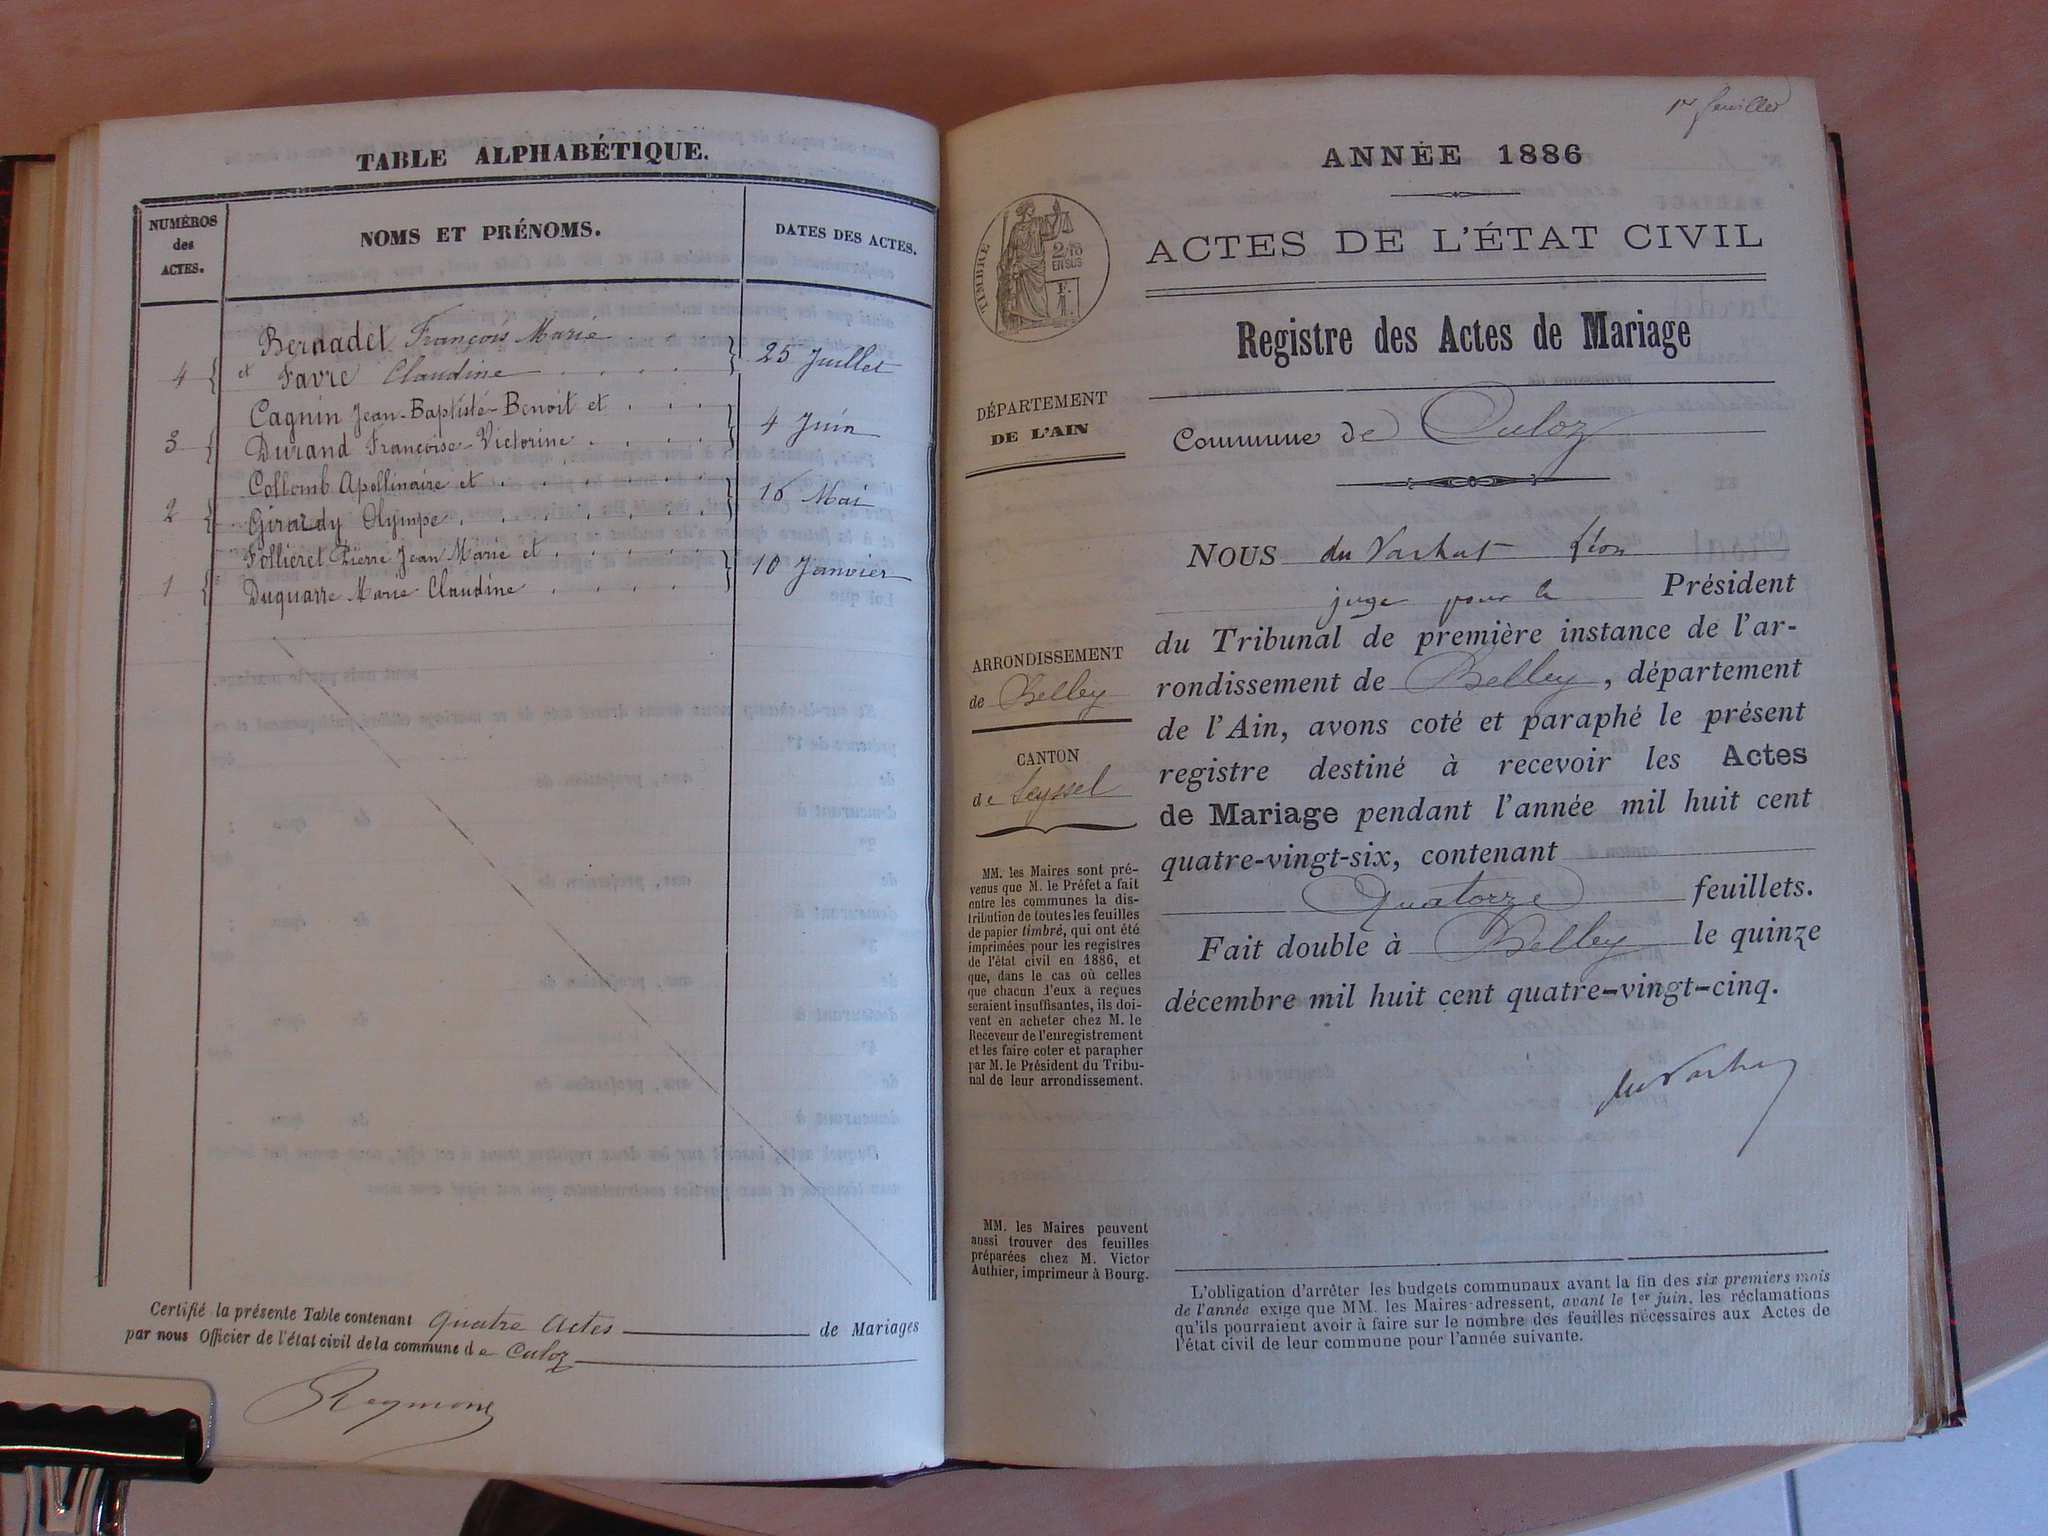 TABLE ALPHABÉTIQUE.
NUMÉROS
des
ACTES.
NOMS ET PRÉNOMS.
DATES DES ACTES.
Bernadet François Marie
4 { et Favre Claudine . . . . } 25 Juillet
Cagnin Jean-Baptiste-Benoit et . . .
3 { Durand Françoise-Victorine . . . . } 4 Juin
Collomb Apollinaire et . . . . .
2 { Girardy Olympe . . . . . . } 16 Mai
Follieret Pierre Jean Marie et . . . . .
1 { Duquarre Marie Claudine . . . . } 10 Janvier
Certifié la présente Table contenant quatre actes de Mariages
par nous Officier de l'état civil de la commune de Culoz
Reymond
1er feuillet
ANNÉE 1886
TIMBRE
2/10
EN SUS
F.
ACTES DE L'ÉTAT CIVIL
Registre des Actes de Mariage
DÉPARTEMENT
DE L'AIN
Commune de Culoz
ARRONDISSEMENT
de Belley
CANTON
de Seyssel
MM. les Maires sont pré-
venus que M. le Préfet a fait
entre les communes la dis-
tribution de toutes les feuilles
de papier timbré, qui ont été
imprimées pour les registres
de l'état civil en 1886, et
que, dans le cas où celles
que chacun d'eux a reçues
seraient insuffisantes, ils doi-
vent en acheter chez M. le
Receveur de l'enregistrement
et les faire coter et parapher
par M. le Président du Tribu-
nal de leur arrondissement.
MM. les Maires peuvent
aussi trouver des feuilles
préparées chez M. Victor
Authier, imprimeur à Bourg.
NOUS du Vachat Léon
juge pour le Président
du Tribunal de première instance de l'ar-
rondissement de Belley, département
de l'Ain, avons coté et paraphé le présent
registre destiné à recevoir les Actes
de Mariage pendant l'année mil huit cent
quatre-vingt-six, contenant
Quatorze feuillets.
Fait double à Belley le quinze
décembre mil huit cent quatre-vingt-cinq.
du Vachat
L'obligation d'arrêter les budgets communaux avant la fin des six premiers mois
de l'année exige que MM. les Maires adressent, avant le 1er juin, les réclamations
qu'ils pourraient avoir à faire sur le nombre des feuilles nécessaires aux Actes de
l'état civil de leur commune pour l'année suivante.